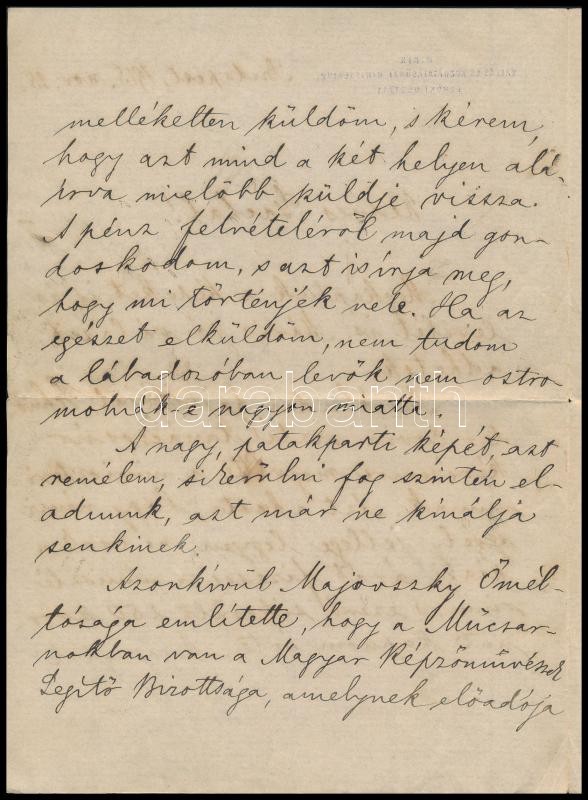 mellékelten küldöm, s kérem,
hogy azt mind a két helyen alá-
írva mielőbb küldje vissza.
A pénz felvételéről majd gon-
doskodom, s azt is írja meg,
hogy mi történjék vele. Ha az
egészet elküldöm, nem tudom
a lábadozóban levők nem ostro-
molnák-e nagyon miatta.
A nagy, patakparti képét, azt
remélem, sikerülni fog szintén el-
adnunk, azt már ne kínálja
senkinek.
Azonkívül Majovszky Őmél-
tósága említette, hogy a Műcsar-
nokban van a Magyar Képzőművészek
Segítő Bizottsága, amelynek előadója
darabanth